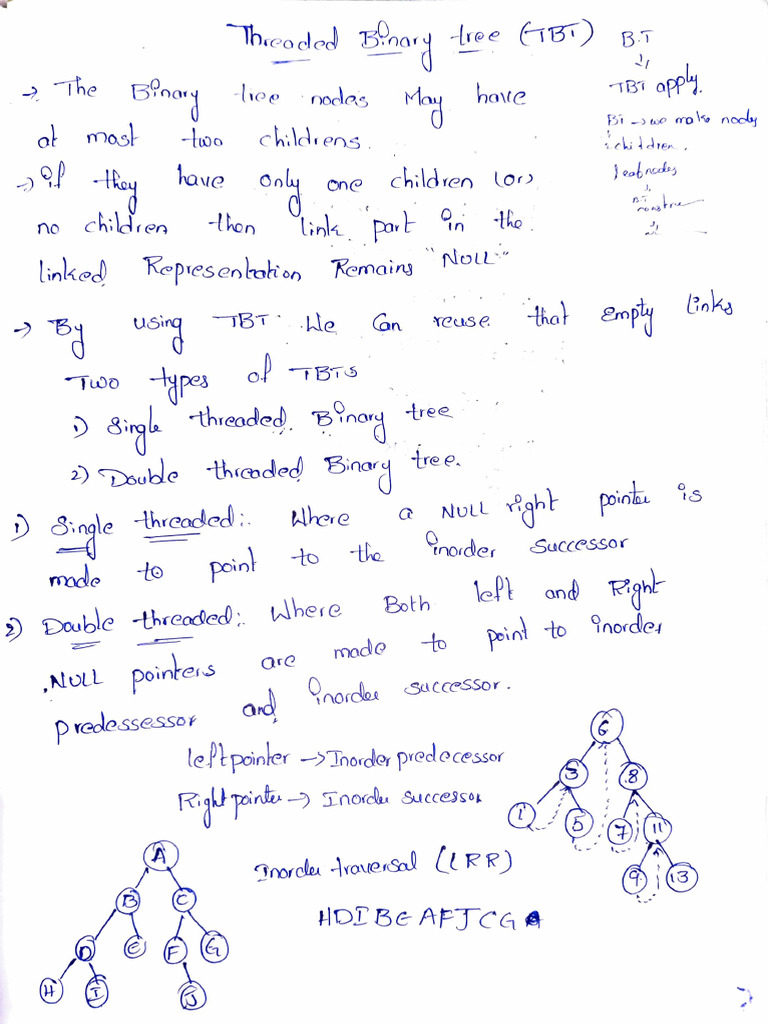 Threaded Binary tree (TBT)
B.T
TBT apply.
BT → we make nody
childdren.
leafnodes
BT
→ The Binary tree nodes May have
at most two childrens.
→ if they have only one children (or)
no children then link part in the
linked Representation Remains "NULL"
→ By using TBT We Can reuse that empty links
Two types of TBTS
1) Single threaded Binary tree
2) Double threaded Binary tree.
1) Single threaded:. Where a NULL right pointer is
made to point to the inorder successor
2) Double threaded:. Where Both left and Right
.NULL pointers are made to point to inorder
predessessor and inorder successor.
left pointer → Inorder predecessor
Right pointer → Inorder successor
6
3 8
1 5 7 11
9 13
Inorder traversal (LRR)
HDIBEAFJCG
A
B C
D E F G
H I J